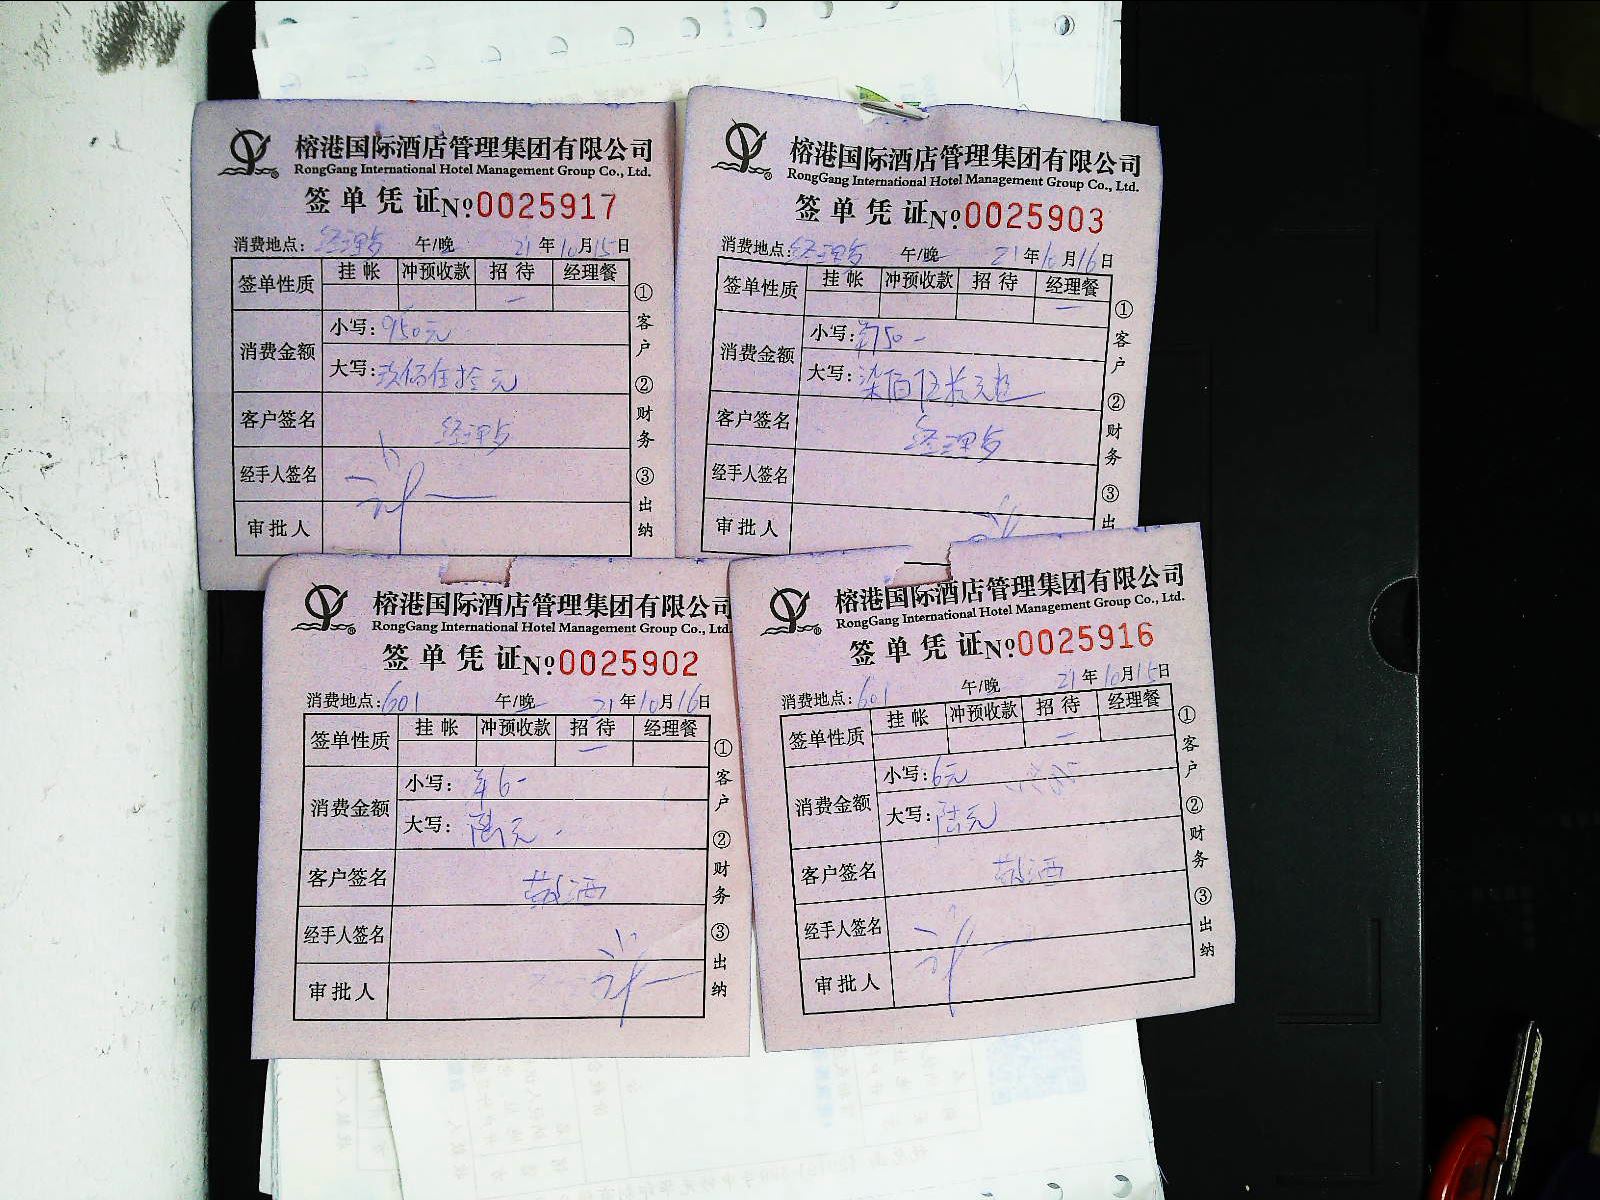 榕港国际酒店管理集团有限公司
RongGang International Hotel Management Group Co., Ltd.
签单凭证 №0025917
消费地点: 经理 午/晚 21年10月15日
签单性质 挂帐 冲预收款 招待 经理餐
消费金额
小写: 950元
大写: 玖佰伍拾元
客户签名 经理
经手人签名
审批人
①客户 ②财务 ③出纳
榕港国际酒店管理集团有限公司
RongGang International Hotel Management Group Co., Ltd.
签单凭证 №0025903
消费地点: 经理 午/晚 21年10月16日
签单性质 挂帐 冲预收款 招待 经理餐
消费金额
小写: ¥750-
大写: 柒佰伍拾元
客户签名 经理
经手人签名
审批人
①客户 ②财务 ③出
榕港国际酒店管理集团有限公司
RongGang International Hotel Management Group Co., Ltd.
签单凭证 №0025902
消费地点: 601 午/晚 21年10月16日
签单性质 挂帐 冲预收款 招待 经理餐
消费金额
小写: ¥6-
大写: 陆元
客户签名 敬酒
经手人签名
审批人
①客户 ②财务 ③出纳
榕港国际酒店管理集团有限公司
RongGang International Hotel Management Group Co., Ltd.
签单凭证 №0025916
消费地点: 601 午/晚 21年10月15日
签单性质 挂帐 冲预收款 招待 经理餐
消费金额
小写: 6元
大写: 陆元
客户签名 敬酒
经手人签名
审批人
①客户 ②财务 ③出纳